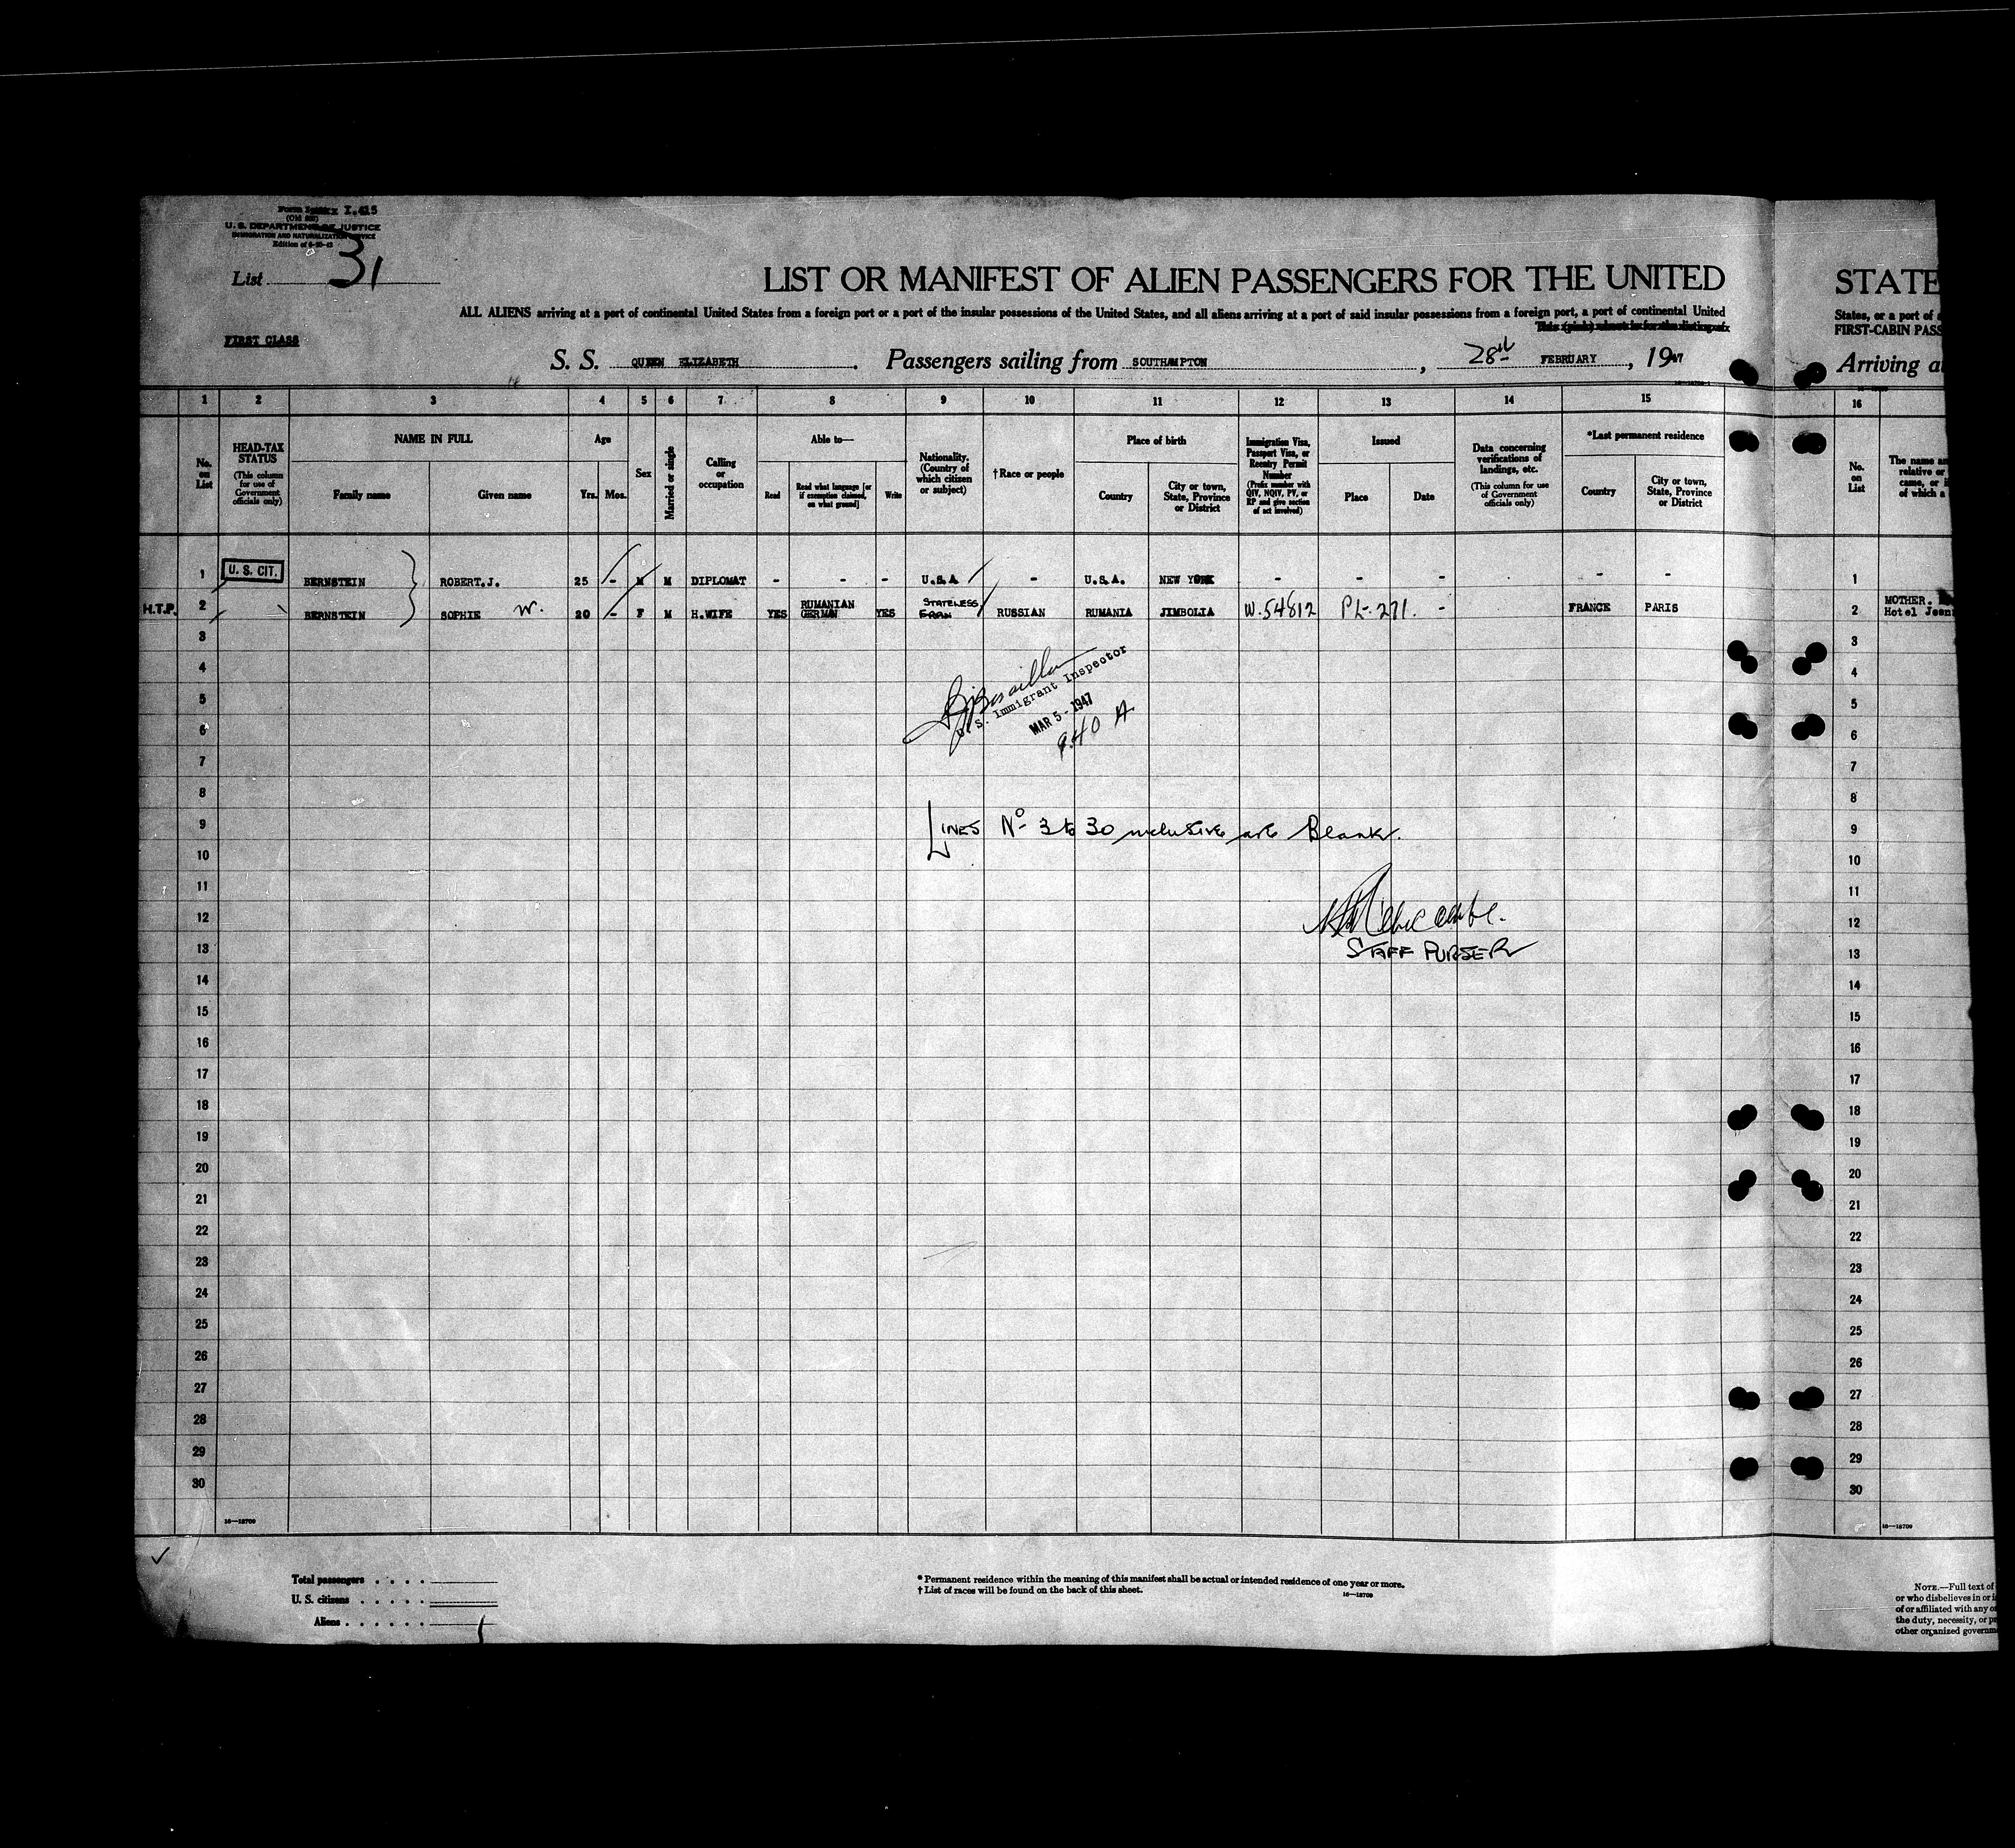 Form I.415
(Old 500)
U. S. DEPARTMENT OF JUSTICE
IMMIGRATION AND NATURALIZATION SERVICE
List 31
LIST OR MANIFEST OF ALIEN PASSENGERS FOR THE UNITED
STATE
ALL ALIENS arriving at a port of continental United States from a foreign port or a port of the insular possessions of the United States, and all aliens arriving at a port of said insular possessions from a foreign port, a port of continental United
States, or a port of
This (pink) sheet is for the listing of
FIRST-CABIN PASS
FIRST CLASS
S. S. QUEEN ELIZABETH. Passengers sailing from SOUTHAMPTON, 28th FEBRUARY, 1947
Arriving at
1 2 3 4 5 6 7 8 9 10 11 12 13 14 15 16
No. on List
HEAD-TAX STATUS
(This column for use of Government officials only)
NAME IN FULL
Family name
Given name
Age
Yrs. Mos.
Sex
Married or single
Calling or occupation
Able to—
Read
Read what language [or if exemption claimed, on what ground]
Write
Nationality. (Country of which citizen or subject)
†Race or people
Place of birth
Country
City or town, State, Province or District
Immigration Visa, Passport Visa, or Reentry Permit Number
(Prefix number with QIV, NQIV, PV, or RP and give section of act involved)
Issued
Place
Date
Data concerning verifications of landings, etc.
(This column for use of Government officials only)
*Last permanent residence
Country
City or town, State, Province or District
No. on List
The name an
relative or
came, or i
of which a
1 U. S. CIT. BERNSTEIN ROBERT.J. 25 - M M DIPLOMAT - - - U.S.A - U.S.A. NEW YORK - - - - - 1
H.T.P. 2 BERNSTEIN SOPHIE W. 20 - F M H.WIFE YES RUMANIAN GERMAN YES STATELESS RUSSIAN RUMANIA JIMBOLIA W.54812 PL-271. - FRANCE PARIS 2 MOTHER.
Hotel Jean
3 3
4 4
5 5
6 6
U. S. Immigrant Inspector
MAR 5 - 1947
9.40 A
7 7
8 8
9 LINES No 3 to 30 inclusive are Blank. 9
10 10
11 11
12 12
13 STAFF PURSER 13
14 14
15 15
16 16
17 17
18 18
19 19
20 20
21 21
22 22
23 23
24 24
25 25
26 26
27 27
28 28
29 29
30 30
16—18709
16—18709
Total passengers . . . .
U. S. citizens . . . . .
Aliens . . . . . . 1
* Permanent residence within the meaning of this manifest shall be actual or intended residence of one year or more.
† List of races will be found on the back of this sheet.
16—18709
NOTE.—Full text of
or who disbelieves in or i
of or affiliated with any o
the duty, necessity, or pr
other organized governm